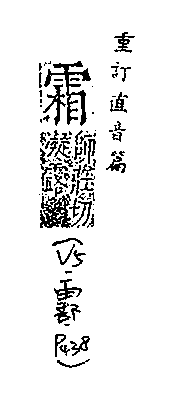 重訂直音篇
霜
師莊切
凝露
(V5-雨部-P438)